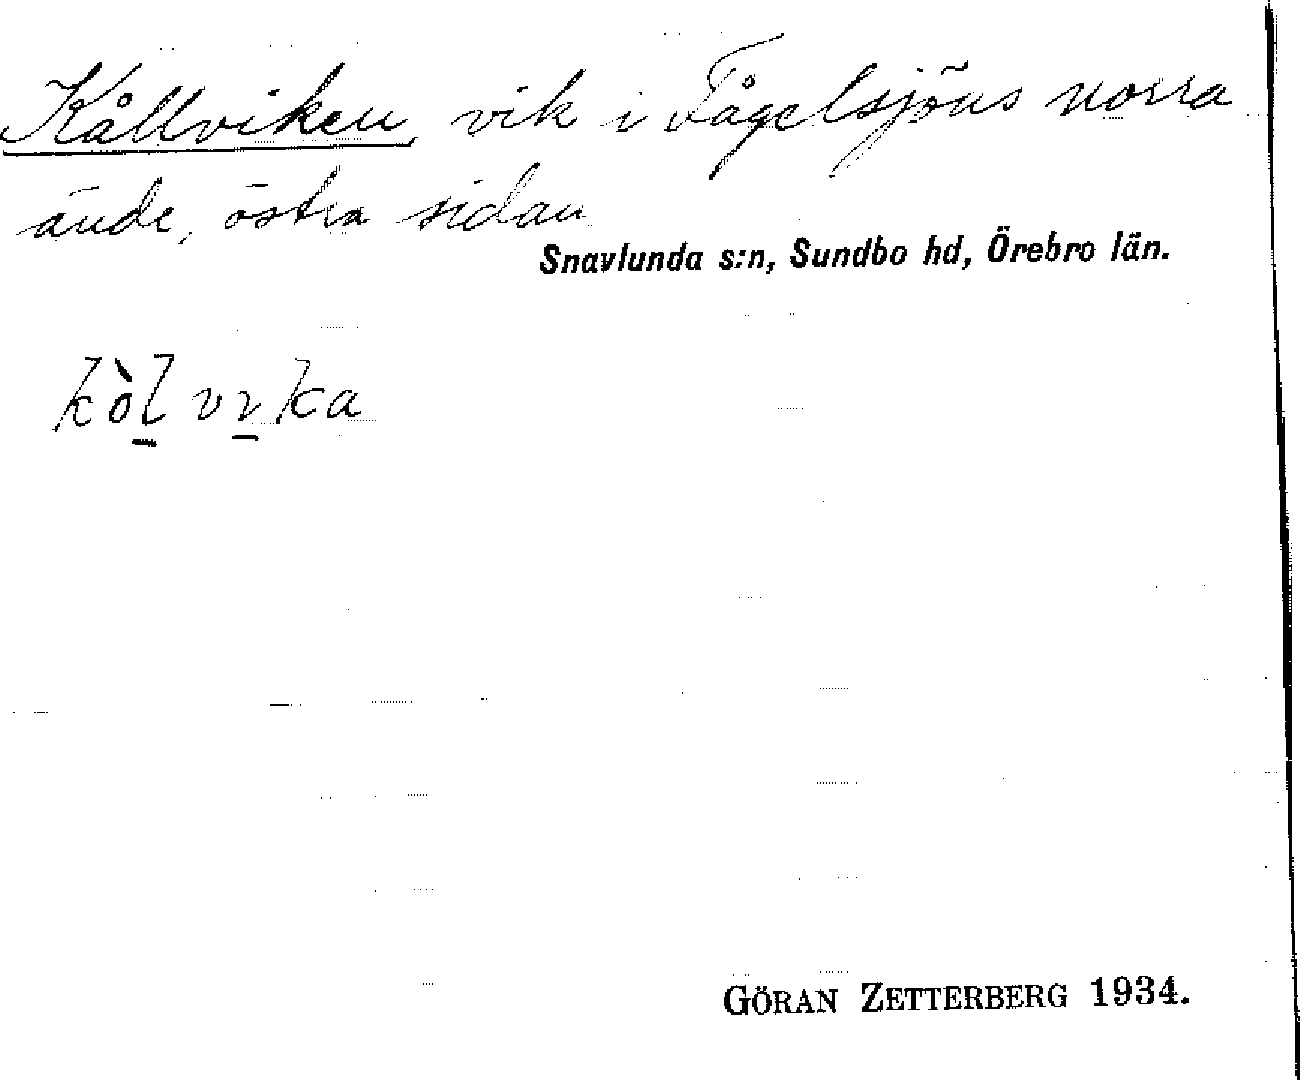 Kållviken, vik i Fågelsjöns norra
ände, östra sidan
Snavlunda s:n, Sundbo hd, Örebro län.
kòl vıka
GÖRAN ZETTERBERG 1934.